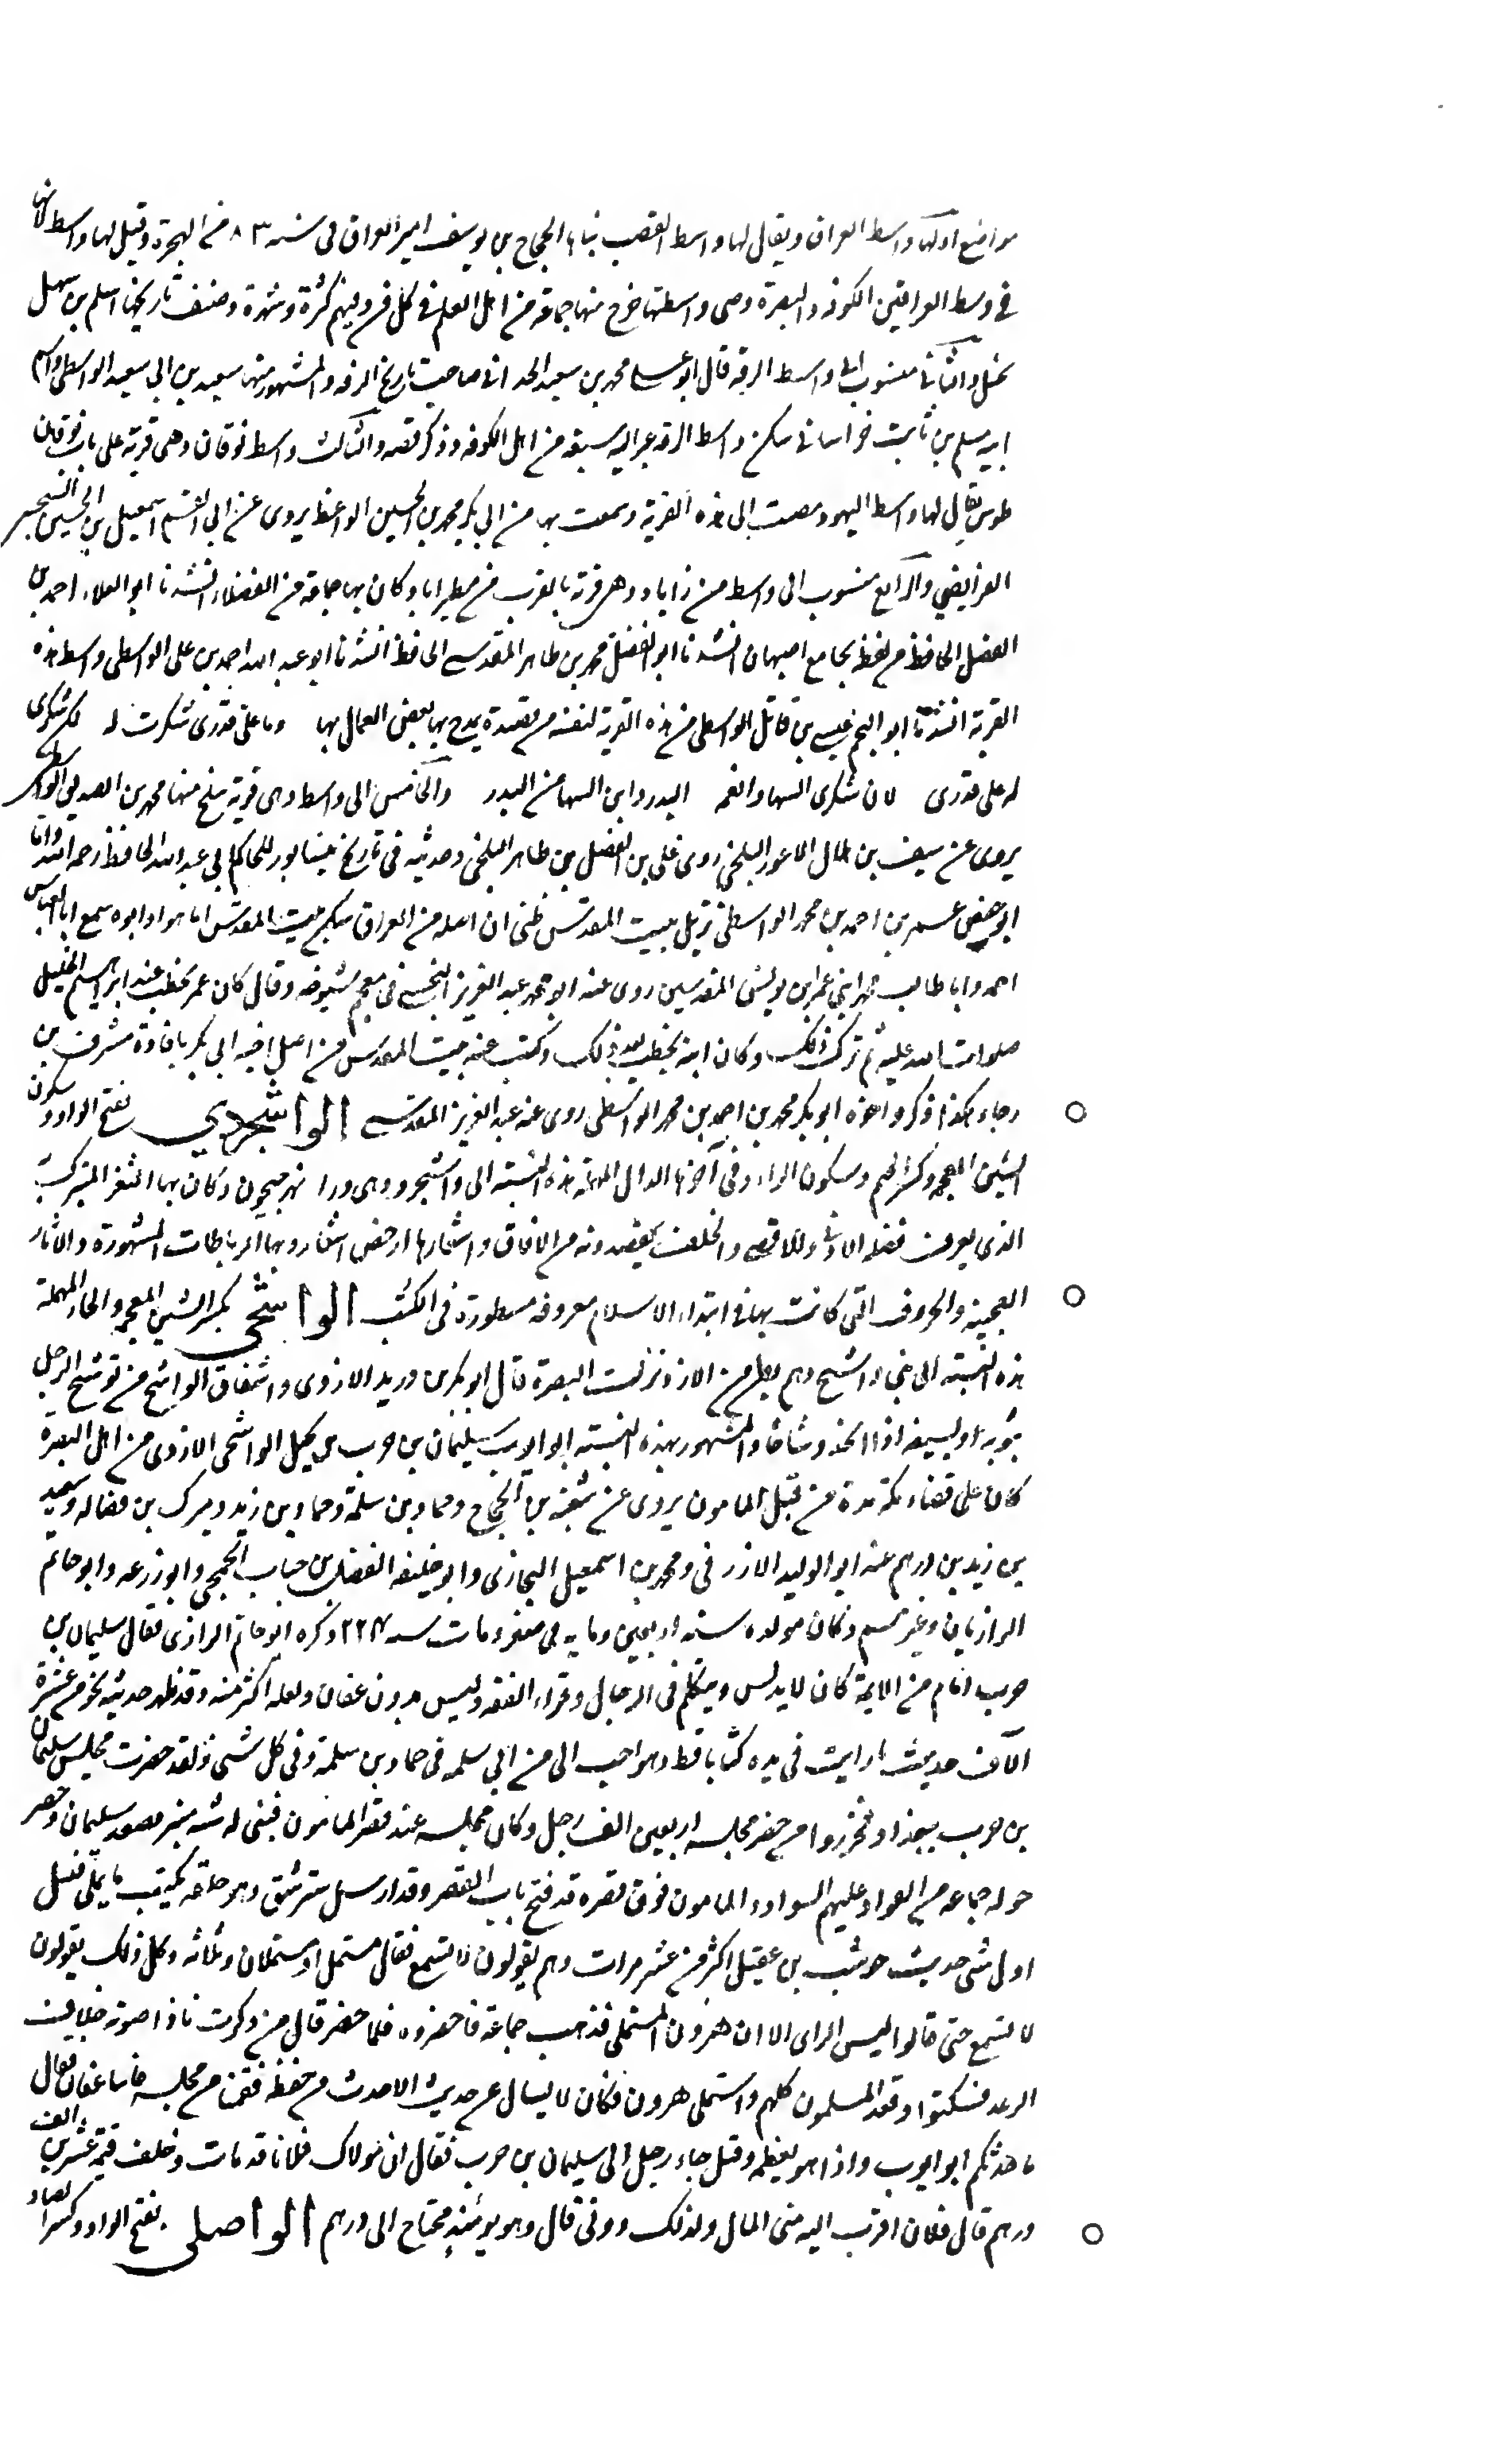 مواضع اولها واسط العراق ويقال لها واسط القصب بناها الحجاج بن يوسف امير العراق فى سنه ٨٣ من الهجرة وقيل لها واسط لانها
فى وسط العراقين الكوفه والبصرة وهى واسطتها خرج منها جماعة من اهل العلم فى كل فن وفيهم كثرة وشهرة وصنف تاريخها اسلم بن سهل
بحشل والثانى منسوب الى واسط الرقه قال ابو على محمد بن سعيد الحرانى صاحب تاريخ الرقه والمشهور منها سعيد بن ابى سعيد الواسطى واسم
ابيه مسلم بن ثابت خراسانى سكن واسط الرقه من اهل الكوفه وذكر قصه والثالث واسط نوقان وهى قرية على باب نوقان
طوس يقال لها واسط اليهود مضيت الى هذه القرية وسمعت بها من ابى بكر محمد بن الحسين الواعظ يروى عن ابى القسم اسمعيل بن الحسين السنجبستى
الفرايضى والرابع منسوب الى واسط مرزاباد وهى قرية بالقرب من مطيراباد وكان بها جماعة من الفضلاء انشدنا ابو العلاء احمد بن
الفضل الحافظ من لفظه بجامع اصبهان انشدنا ابو الفضل محمد بن طاهر المقدسى الحافظ انشدنا ابو عبد الله احمد بن على الواسطى واسط هذه
القرية انشدنا ابو النجم عيسى بن فاتك الواسطى من هذه القرية لنفسه من قصيدة يمدح بها بعض العمال بها وما على قدرى شكرت له لكن شكرى
له على قدرى لان شكرى السها وانعمه البدر واين السها من البدر والخامس الى واسط وهى قرية ببلخ منها محمد بن الواسطى
يروى عن سيف بن هلال الاعور البلخى روى على بن الفضل بن طاهر البلخى وحديثه فى تاريخ نيسابور للحاكم ابى عبد الله الحافظ رحمه الله واما
ابو حفص عمر بن احمد بن محمد الواسطى نزيل بيت المقدس ظنى ان اصله من العراق سكن بيت المقدس اما هو او ابوه سمع ابا العباس
احمد وابا طالب محمد ابنى عمر بن يونس المقدسيين روى عنه ابو محمد عبد العزيز النخشبى فى معجم شيوخه وقال كان عمر يخطب عند ابراهيم الخليل
صلوات الله عليه ثم ترك ذلك وكان ابنه يخطب بعد ذلك وكتب عنه ببيت المقدس من اصل اخيه ابى بكر بافادة مشرف بن
رجاء هكذا ذكر واخوه ابو بكر محمد بن احمد بن محمد الواسطى روى عنه عبد العزيز المقدسى الواشجردي بفتح الواو وسكون
الشين المعجمه وكسر الجيم وسكون الراء وفى آخرها الدال المهملة هذه النسبة الى واشجرد وهى وراء نهر جيحون وكان بها الثغر المتبركت
الذى يعرف فضله الادانى والاقاصى والخلف يقصدونه من الافاق واسعارها ارخص اسعار وبها الرباطات المشهورة والاثار
العجيبه والحروف التى كانت بها فى ابتداء الاسلام معروفه مسطورة فى الكتب الواشحى بكسر الشين المعجمه والحاء المهملة
هذه النسبة الى بنى واشح وهم بطن من الازد نزلت البصرة قال ابو بكر بن دريد الازدى واشتقاق الواشح من توشح الرجل
بثوبه او بسيفه اذا اتخذه وشاحا والمشهور بهذه النسبة ابو ايوب سليمان بن حرب بن بجيل الواشحى الازدى من اهل البصرة
كان على قضاء مكة مدة من قبل المامون يروى عن شعبة بن الحجاج وحماد بن سلمة وحماد بن زيد ومبرك بن فضاله وسعيد
بن زيد بن درهم عنه ابو الوليد الازرقى ومحمد بن اسمعيل البخارى وابو خليفه الفضل بن حباب الجمحى وابو زرعه وابو حاتم
الرازيان وغيرهم وكان مولده سنه اربعين ومايه فى صفر ومات سنه ٢٢٤ ذكره ابو حاتم الرازى فقال سليمان بن
حرب امام من الايمة كان لا يدلس ويتكلم فى الرجال وقراء الفقه وليس بدون عفان ولعله اكثر منه وقد ظهر حديثه نحو من عشرة
الآف حديث ما رايت فى يده كتابا قط وهو احب الى من ابى سلمه فى حماد بن سلمة وفى كل شى ولقد حضرت مجلس سليمان
بن حرب ببغداد فحزروا من حضر مجلسه اربعين الف رجل وكان مجلسه عند قصر المامون فبنى له شبه منبر فصعد سليمان وحضر
حوله جماعه من القواد عليهم السواد والمامون فوق قصره قد فتح باب القصر وقد ارسل ستر شق وهو خلفه يكتب ما يملى فسئل
اول شى حديث حوشب بن عقيل اكثر من عشر مرات وهم يقولون لا نسمع فقال مستمل او مستملان وثلاثه وكل ذلك يقولون
لا نسمع حتى قالوا ليس الراى الا ان هرون المستملى فذهب جماعة فاحضروه فلما حضر قال من ذكرت فاذا صوته خلاف
الرعد فسكتوا وقعد المسلمون كلهم واستملى هرون فكان لا يسال عن حديث الا حدث من حفظه فقمنا من مجلسه فاتينا عفان فقال
ما حدثكم ابو ايوب واذا هو يعظمه وقيل جاء رجل الى سليمان بن حرب فقال ان مولاك فلانا قد مات وخلف قيمة عشرين الف
درهم قال فلان اقرب اليه منى المال ولذلك دونى قال وهو يومئذ محتاج الى درهم الواصلى بفتح الواو وكسر الصاد